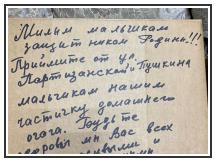 Милым мальчикам
защитникам Родины!!!
Примите от ул.
Партизанской и Пушкина
мальчикам нашим
частичку домашнего
очага. Будьте
здоровы мы Вас всех